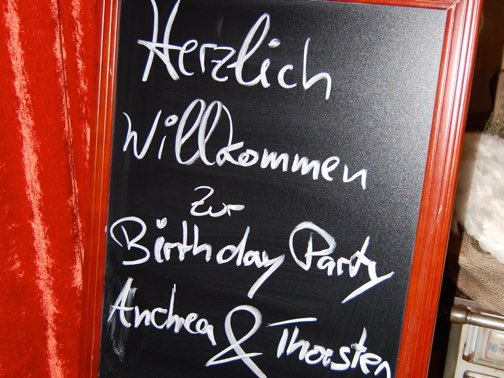 Herzlich
Willkommen
zur
Birthday Party
Andrea & Thorsten